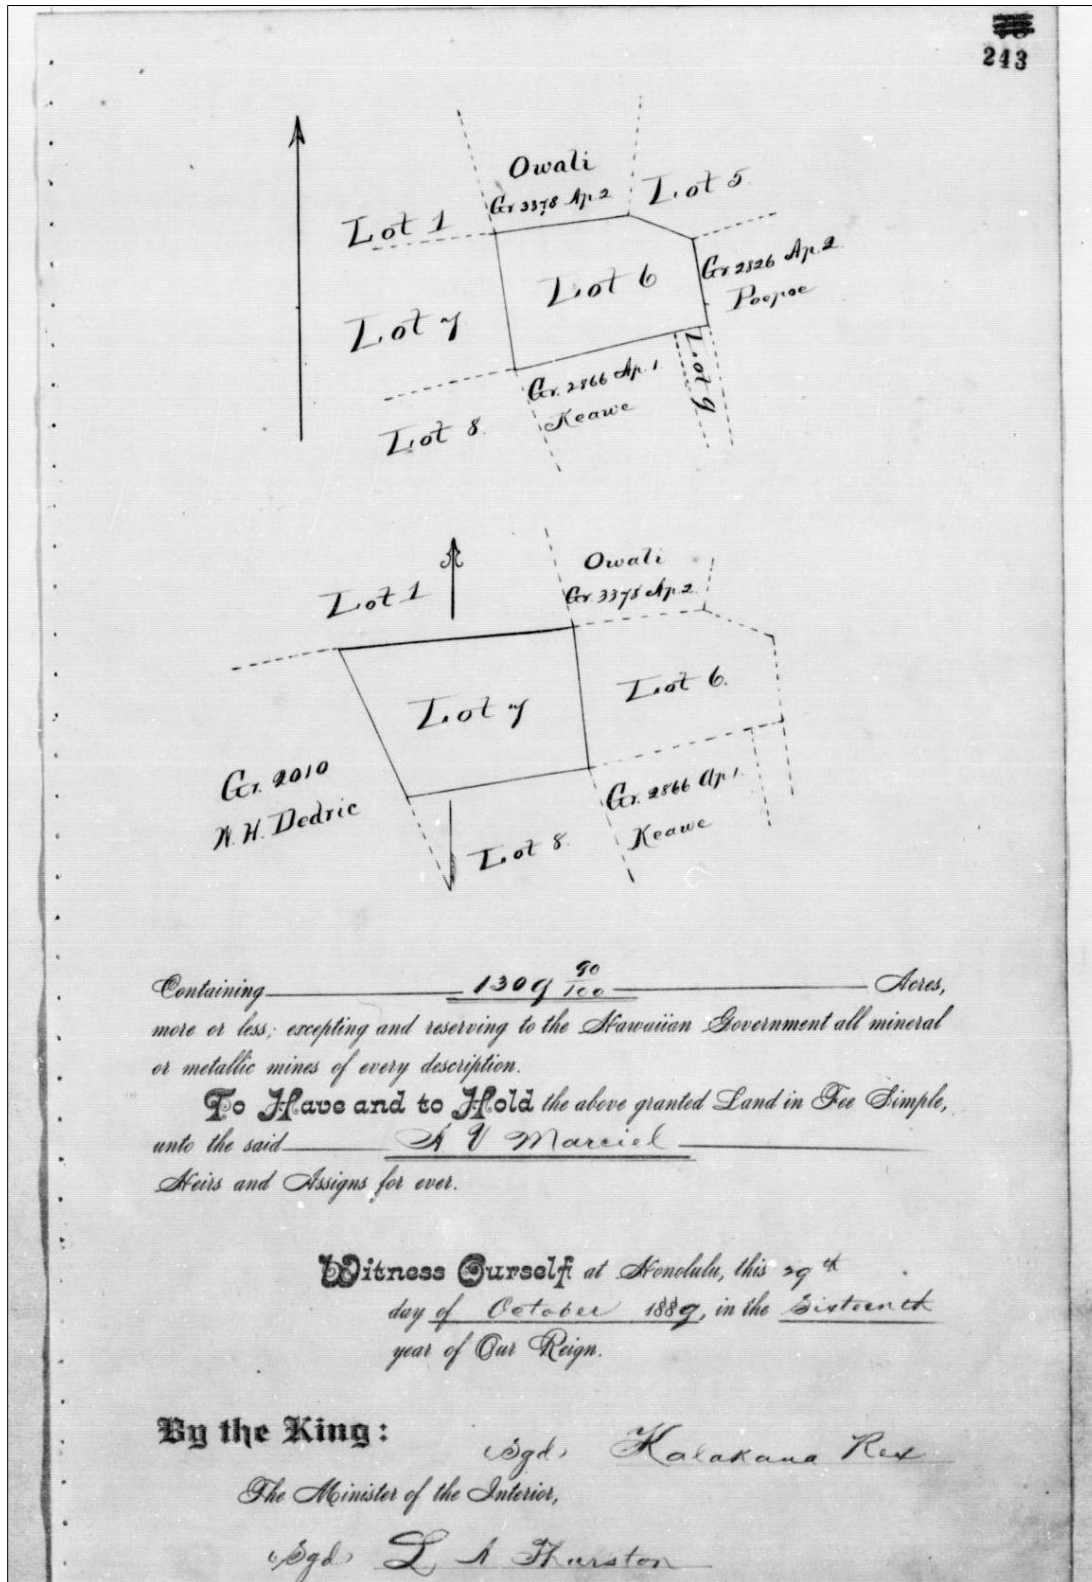 243
Owali
Gr 3378 Ap. 2
Lot 5
Lot 1
Gr 2826 Ap. 2
Poepoe
Lot 6
Lot 7
Lot 9
Gr. 2866 Ap. 1
Keawe
Lot 8
N
Owali
Gr 3378 Ap. 2
Lot 1
Lot 7
Lot 6.
Gr. 2010
W. H. Dedric
Gr. 2866 Ap 1.
Keawe
Lot 8.
Containing 1309 90/100 Acres,
more or less; excepting and reserving to the Hawaiian Government all mineral
or metallic mines of every description.
To Have and to Hold the above granted Land in Fee Simple,
unto the said A V Marciel
Heirs and Assigns for ever.
Witness Ourself at Honolulu, this 29th
day of October 1889, in the Sixteenth
year of Our Reign.
By the King:
(Sgd) Kalakaua Rex
The Minister of the Interior,
(Sgd) L A Thurston